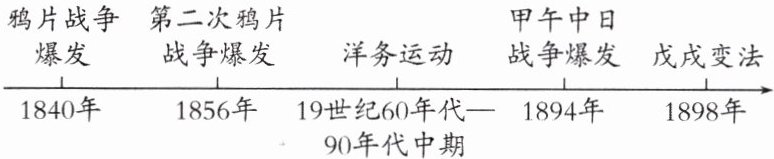 鸦片战争 第二次鸦片 甲午中日
爆发 战争爆发 洋务运动 战争爆发 戊戌变法
1840年 1856年 19世纪60年代— 1894年 1898年
90年代中期